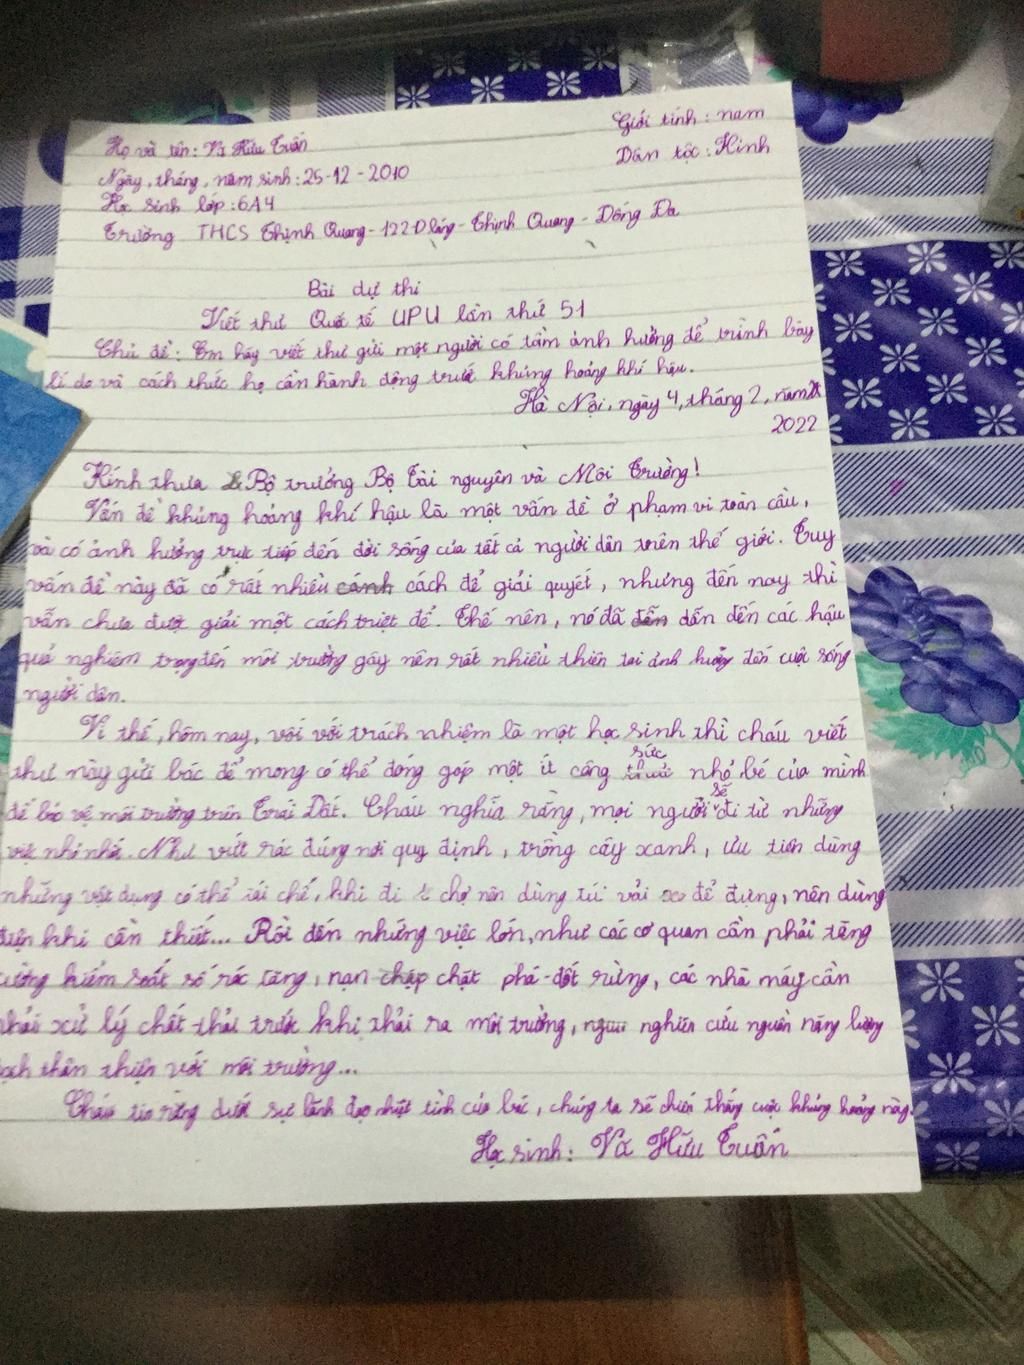 Họ và tên: Vũ Hữu Tuấn
Giới tính: nam
Ngày, tháng, năm sinh: 25-12-2010
Dân tộc: Kinh
Học sinh lớp: 6A4
Trường THCS Thịnh Quang - 122 Đ láng - Thịnh Quang - Đống Đa
Bài dự thi
Viết thư Quốc tế UPU lần thứ 51
Chủ đề: Em hãy viết thư gửi một người có tầm ảnh hưởng để trình bày
lí do và cách thức họ cần hành động trước khủng hoảng khí hậu.
Hà Nội, ngày 4, tháng 2, năm
2022
Kính thưa Bộ trưởng Bộ Tài nguyên và Môi Trường!
Vấn đề khủng hoảng khí hậu là một vấn đề ở phạm vi toàn cầu,
và có ảnh hưởng trực tiếp đến đời sống của tất cả người dân trên thế giới. Tuy
vấn đề này đã có rất nhiều cánh cách để giải quyết, nhưng đến nay thì
vẫn chưa được giải một cách triệt để. Thế nên, nó đã dẫn dẫn đến các hậu
quả nghiêm trọng đến môi trường gây nên rất nhiều thiên tai ảnh hưởng đến cuộc sống
người dân.
Vì thế, hôm nay, với với trách nhiệm là một học sinh thì cháu viết
thư này gửi bác để mong có thể đóng góp một ít công sức nhỏ bé của mình
để bảo vệ môi trường trên Trái Đất. Cháu nghĩa rằng, mọi người sẽ đi từ những
việc nhỏ nhỏ. Như vứt rác đúng nơi quy định, trồng cây xanh, ưu tiên dùng
những vật dụng có thể tái chế, khi đi chợ nên dùng túi vải để đựng, nên dùng
điện khi cần thiết... Rồi đến những việc lớn, như các cơ quan cần phải tăng
cường kiểm soát số rác tăng, nạn cháp chặt phá-đốt rừng, các nhà máy cần
phải xử lý chất thải trước khi thải ra môi trường, nghiên cứu nguồn năng lượng
sạch thân thiện với môi trường...
Cháu tin rằng dưới sự lãnh đạo nhiệt tình của bác, chúng ta sẽ chiến thắng cuộc khủng hoảng này.
Học sinh: Vũ Hữu Tuấn